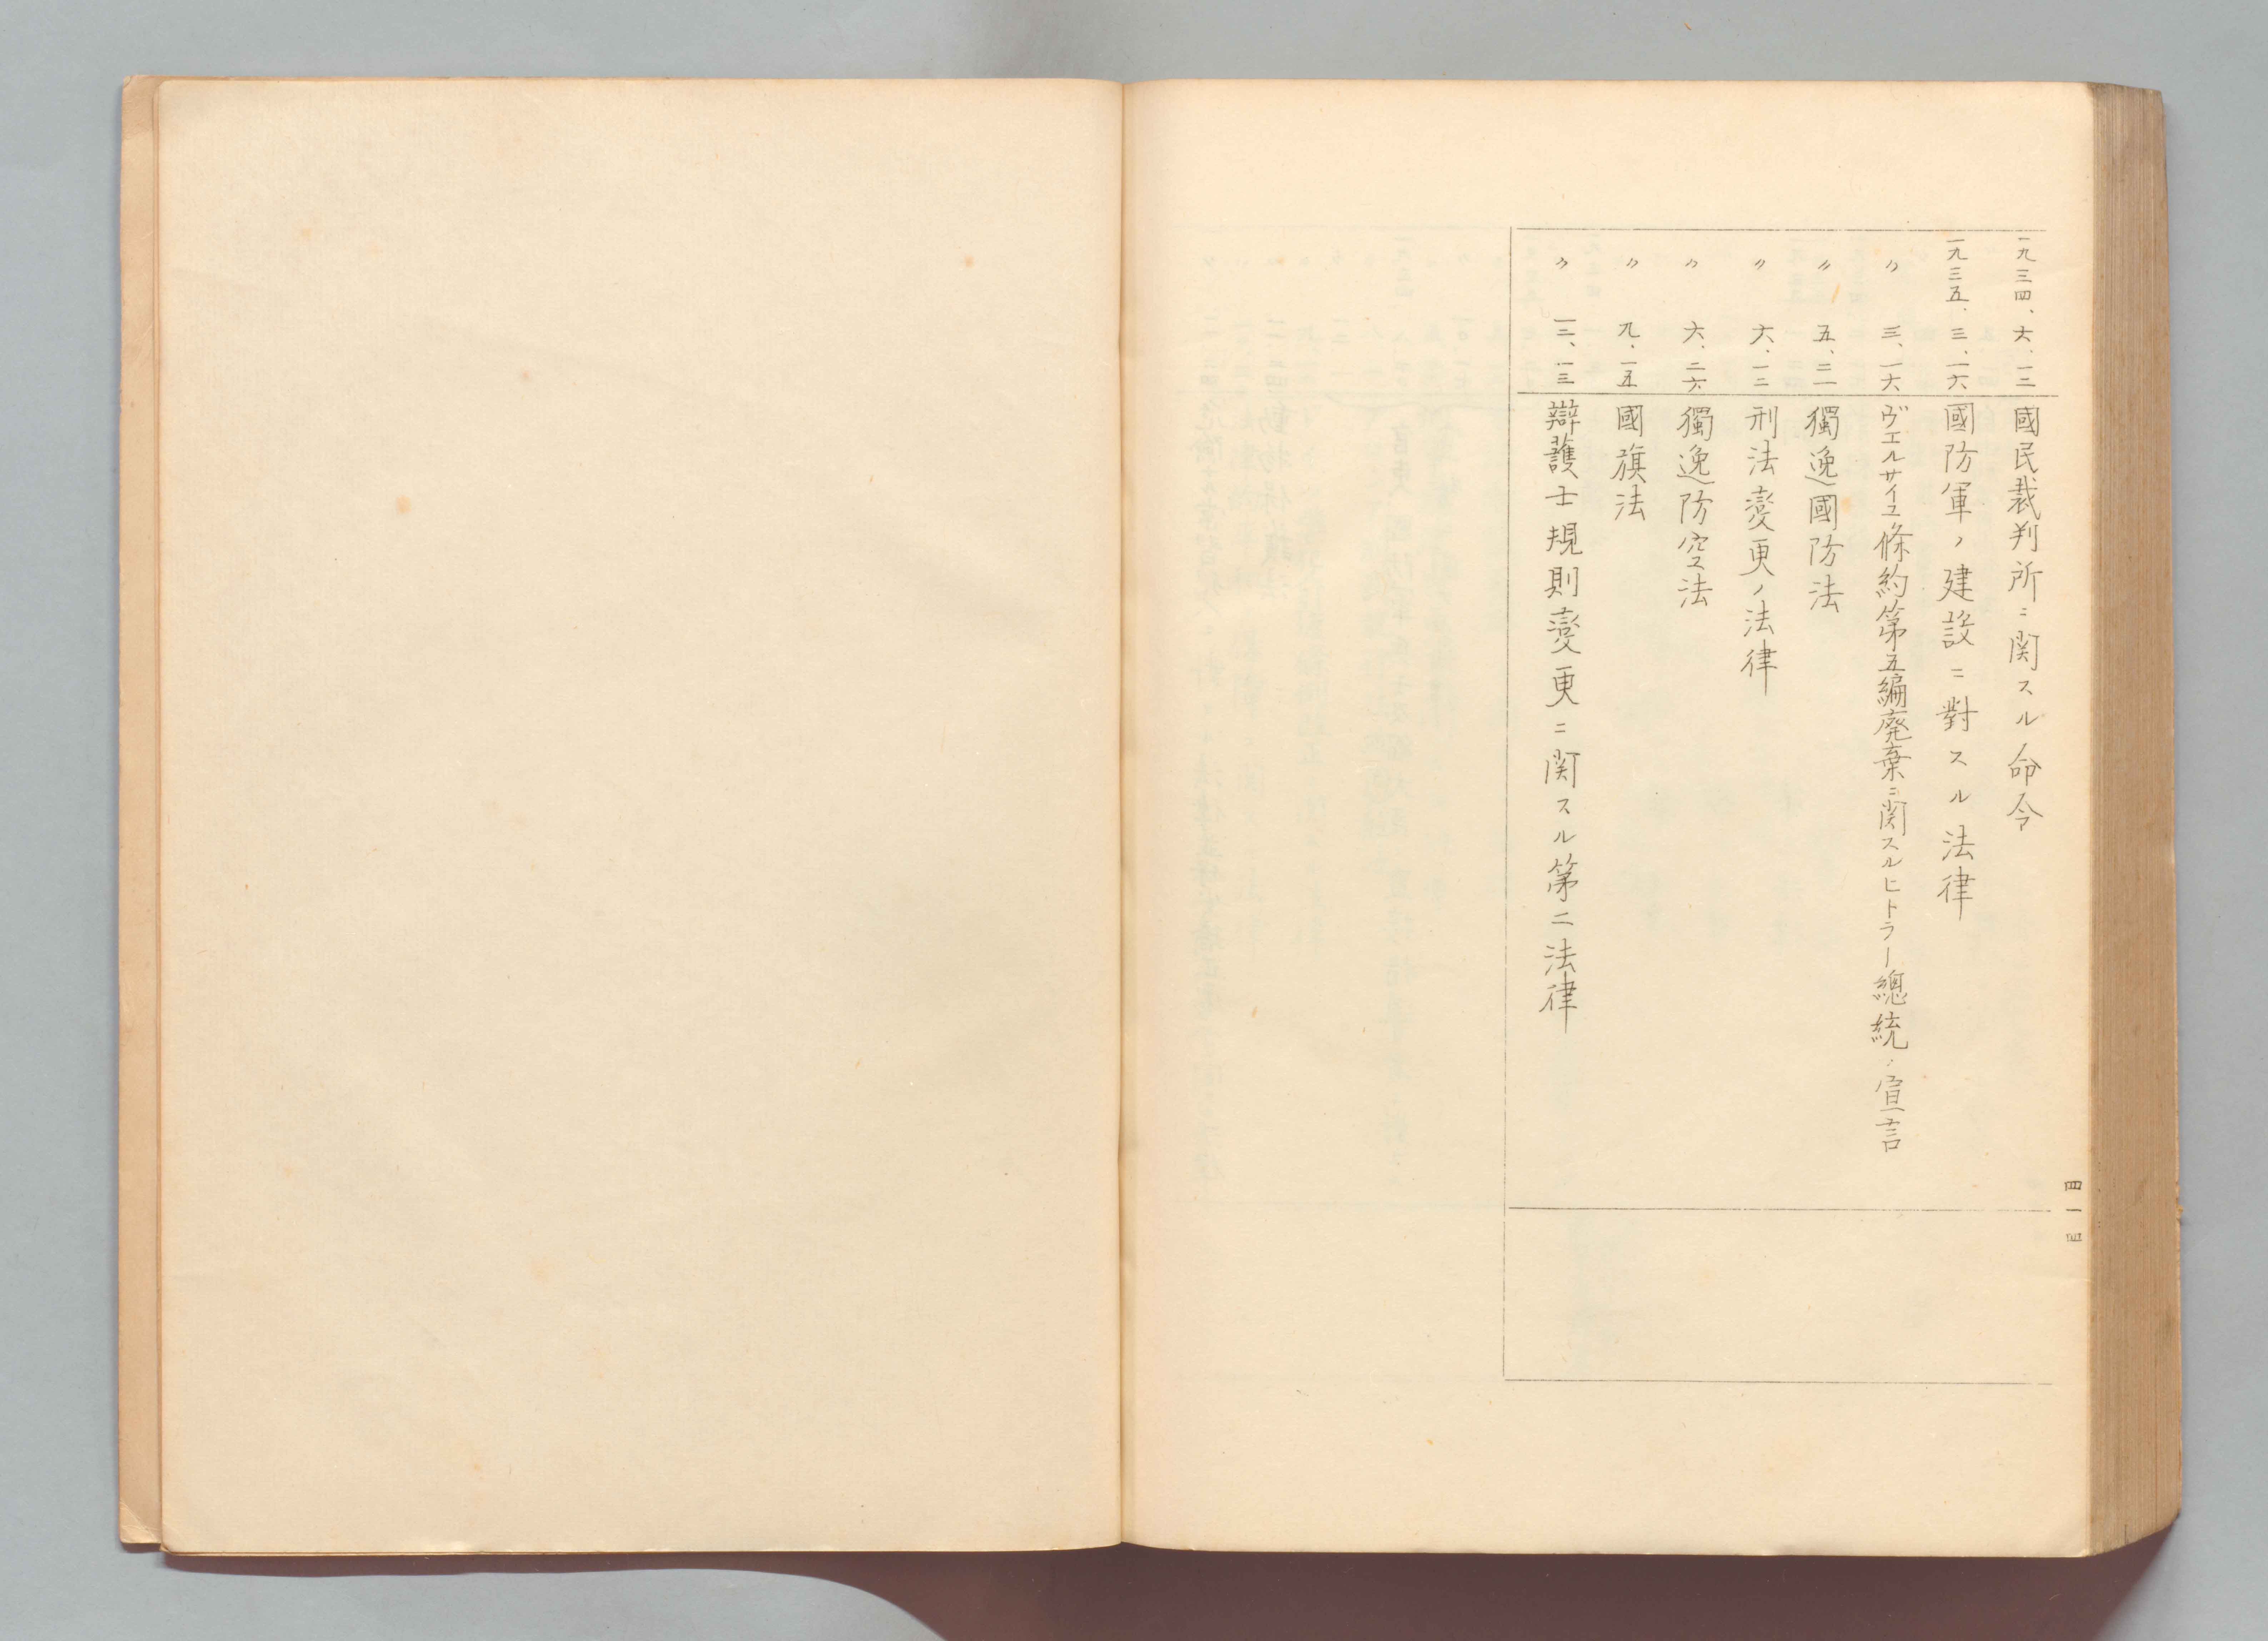 一九三四、六、一二 國民裁判所ニ関スル命令
一九三五、三、一六 國防軍ノ建設ニ對スル法律
〃 三、一六 ヴエルサイユ條約第五編廃棄ニ関スルヒトラー總統ノ宣言
〃 五、二一 獨逸國防法
〃 六、一二 刑法變更ノ法律
〃 六、二六 獨逸防空法
〃 九、一五 國旗法
〃 一三、一三 辯護士規則變更ニ関スル第二法律
四一